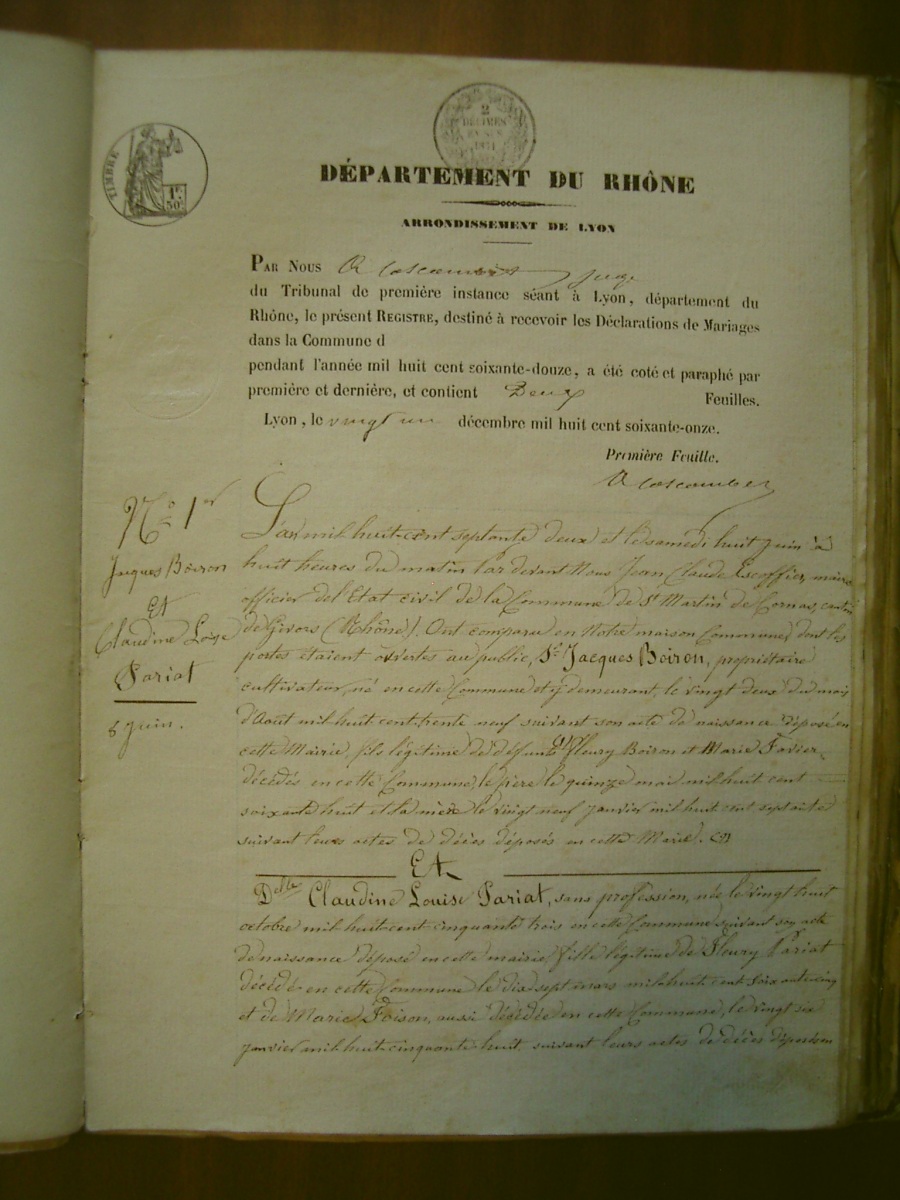 TIMBRE
1F.
50c
2
DÉCIMES
EN SUS
1871
DÉPARTEMENT DU RHÔNE
ARRONDISSEMENT DE LYON
PAR NOUS juge
du Tribunal de première instance séant à Lyon, département du
Rhône, le présent REGISTRE, destiné à recevoir les Déclarations de Mariages
dans la Commune d
pendant l'année mil huit cent soixante-douze, a été coté et paraphé par
première et dernière, et contient Deux Feuilles.
Lyon, le vingt un décembre mil huit cent soixante-onze.
Première Feuille.
N° 1er
Jacques Boiron
Et
Claudine Loise
Pariat
8 Juin.
L'an mil huit-cent septante deux et le samedi huit juin à
huit heures du matin Par devant Nous Jean Claude Escoffier, maire
officier de l'Etat civil de la Commune de St Martin de Cornas, canton
de Givors (Rhône). Ont comparu en Notre maison Commune, dont les
portes étaient ouvertes au public, Sr Jacques Boiron, propriétaire
cultivateur, né en cette Commune et y demeurant, le vingt deux du mois
d'Août mil huit cent trente neuf suivant son acte de naissance déposé en
cette Mairie, fils légitime de défunts Fleury Boiron et Marie Favier
décédés en cette Commune, le père le quinze mai mil huit cent
soixante huit et la mère le vingt neuf janvier mil huit cent septante
suivant leurs actes de décès déposés en cette Mairie.
Et
Delle Claudine Louise Pariat, sans profession, née le vingt huit
octobre mil huit-cent cinquante trois en cette Commune suivant son acte
de naissance déposé en cette mairie, fille légitime de Fleury Pariat
décédé en cette Commune le dix sept mars mil huit cent soixante cinq
et de Marie Foison, aussi décédée en cette Commune, le vingt six
janvier mil huit cinquante huit suivant leurs actes de décès déposés en